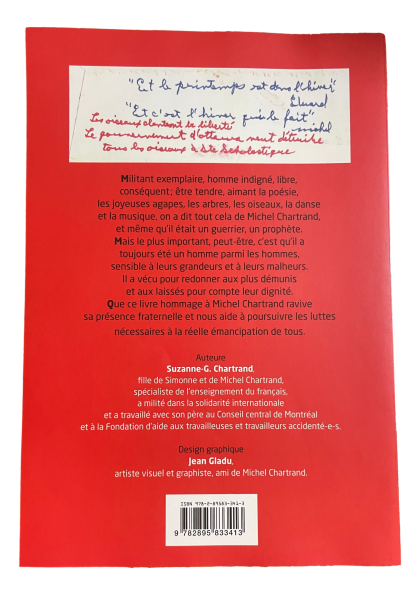 "Et le printemps est dans l'hiver"
Éluard
"Et c'est l'hiver qui le fait"
michel
Les oiseaux chantent la liberté
Le gouvernement d'ottawa veut détruire
tous les oiseaux à Ste Scholastique
Militant exemplaire, homme indigné, libre,
conséquent ; être tendre, aimant la poésie,
les joyeuses agapes, les arbres, les oiseaux, la danse
et la musique, on a dit tout cela de Michel Chartrand,
et même qu'il était un guerrier, un prophète.
Mais le plus important, peut-être, c'est qu'il a
toujours été un homme parmi les hommes,
sensible à leurs grandeurs et à leurs malheurs.
Il a vécu pour redonner aux plus démunis
et aux laissés pour compte leur dignité.
Que ce livre hommage à Michel Chartrand ravive
sa présence fraternelle et nous aide à poursuivre les luttes
nécessaires à la réelle émancipation de tous.
Auteure
Suzanne-G. Chartrand,
fille de Simonne et de Michel Chartrand,
spécialiste de l'enseignement du français,
a milité dans la solidarité internationale
et a travaillé avec son père au Conseil central de Montréal
et à la Fondation d'aide aux travailleuses et travailleurs accidenté-e-s.
Design graphique
Jean Gladu,
artiste visuel et graphiste, ami de Michel Chartrand.
ISBN 978-2-89583-341-3
9 782895 833413